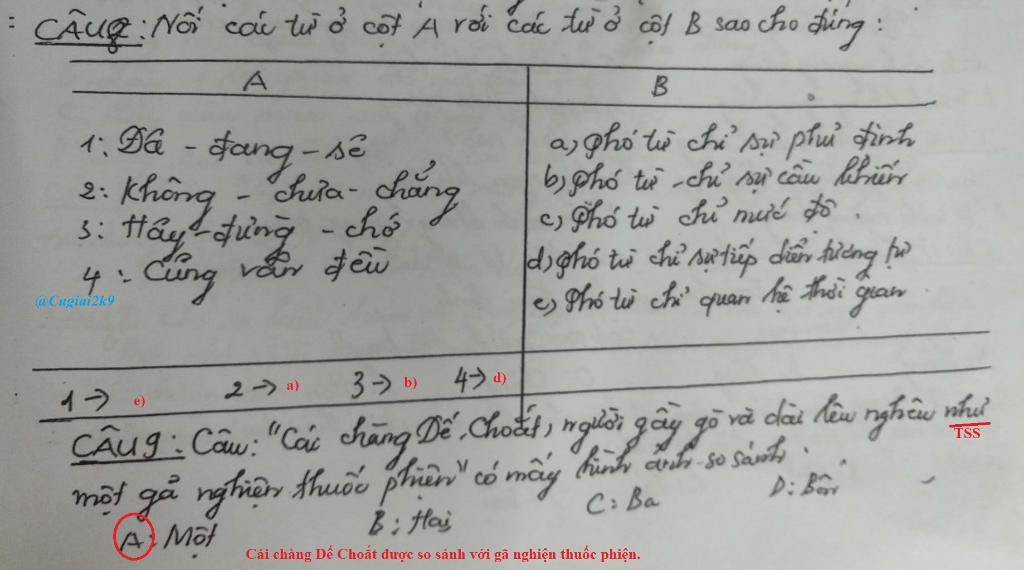 : CÂU8: Nối các từ ở cột A với các từ ở cột B sao cho đúng:
A B
1: Đã - đang - sẽ a) phó từ chỉ sự phủ định
2: Không - chưa - chẳng b) phó từ - chỉ sự cầu khiến
3: Hãy - đừng - chớ c) Phó từ chỉ mức độ.
4: Cũng vẫn đều d) phó từ chỉ sự tiếp diễn tương tự
@Cugiai2k9 e) Phó từ chỉ quan hệ thời gian
1 → e) 2 → a) 3 → b) 4 → d)
CÂU9: Câu: "Cái chàng Dế Choắt, người gầy gò và dài lêu nghêu như
TSS
một gã nghiện thuốc phiện" có mấy hình ảnh so sánh.
A: Một B: Hai C: Ba D: Bốn
Cái chàng Dế Choắt được so sánh với gã nghiện thuốc phiện.